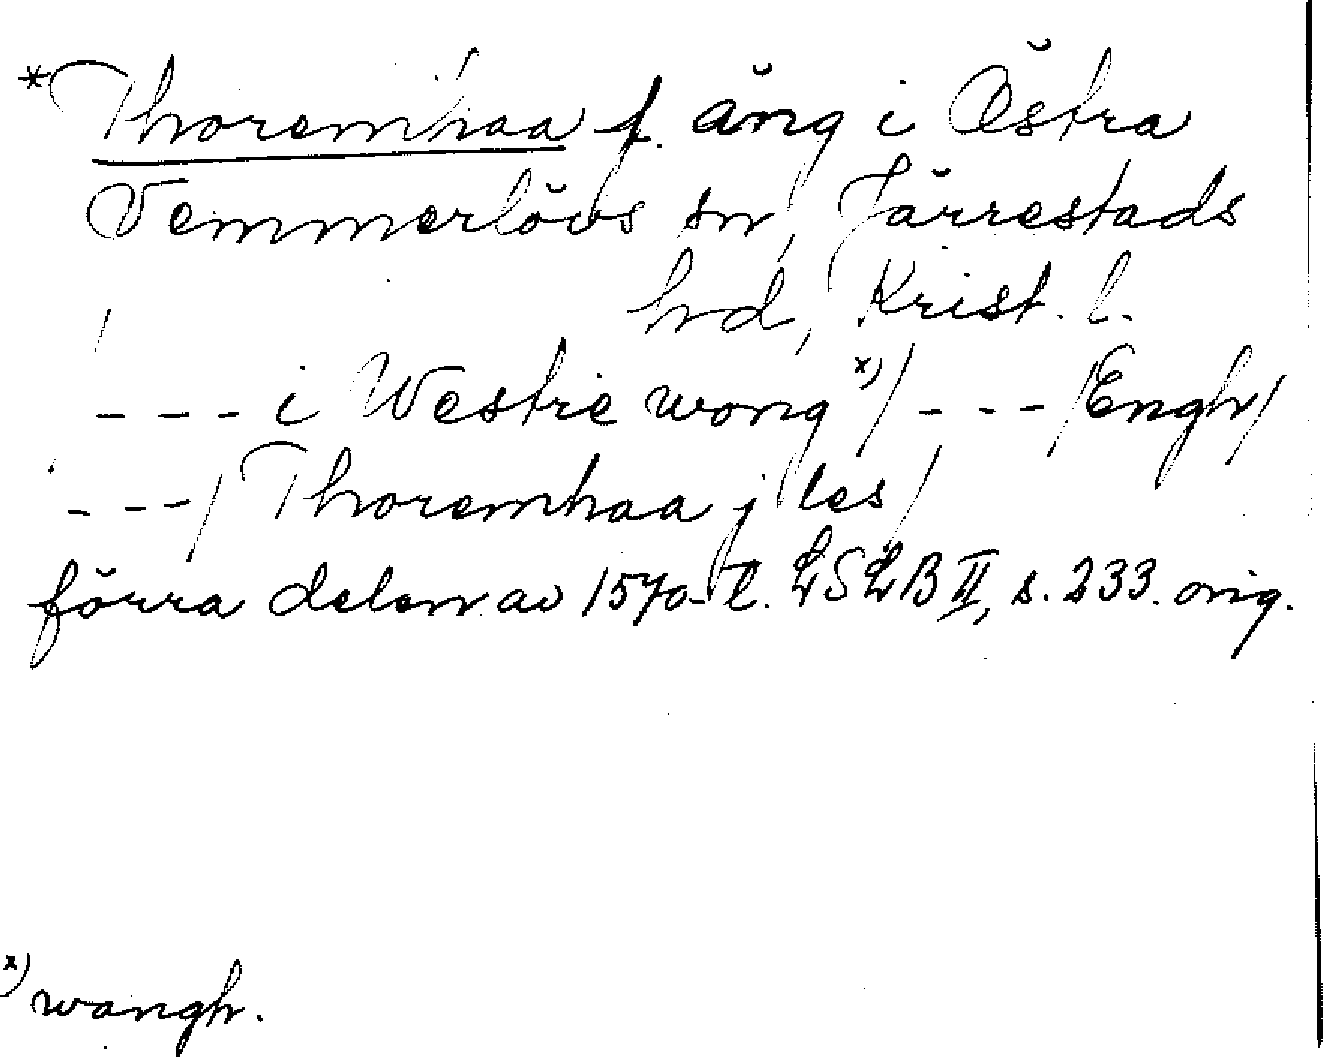 *Thoremhaa f. äng i Östra
Vemmerlövs sn, Järrestads
hd, Krist. l.
- - - i Westre wong x) / - - - / Engh /
- - - / Thoremhaa j les /
förra delen av 1570-t. LSLB II, s. 233. orig.
x) wangh.